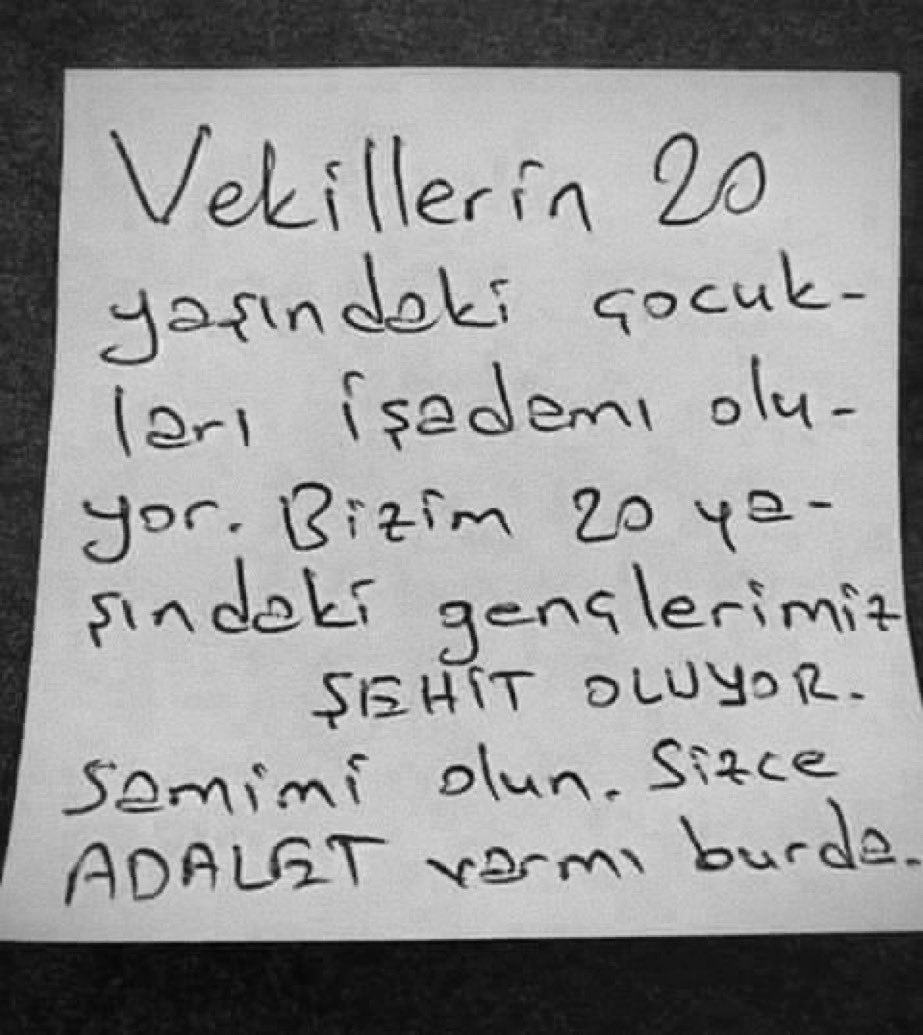 Vekillerin 20
yaşındaki çocuk-
ları işadamı olu-
yor. Bizim 20 ya-
şındaki gençlerimiz
ŞEHİT OLUYOR.
Samimi olun. Sizce
ADALET varmı burda.